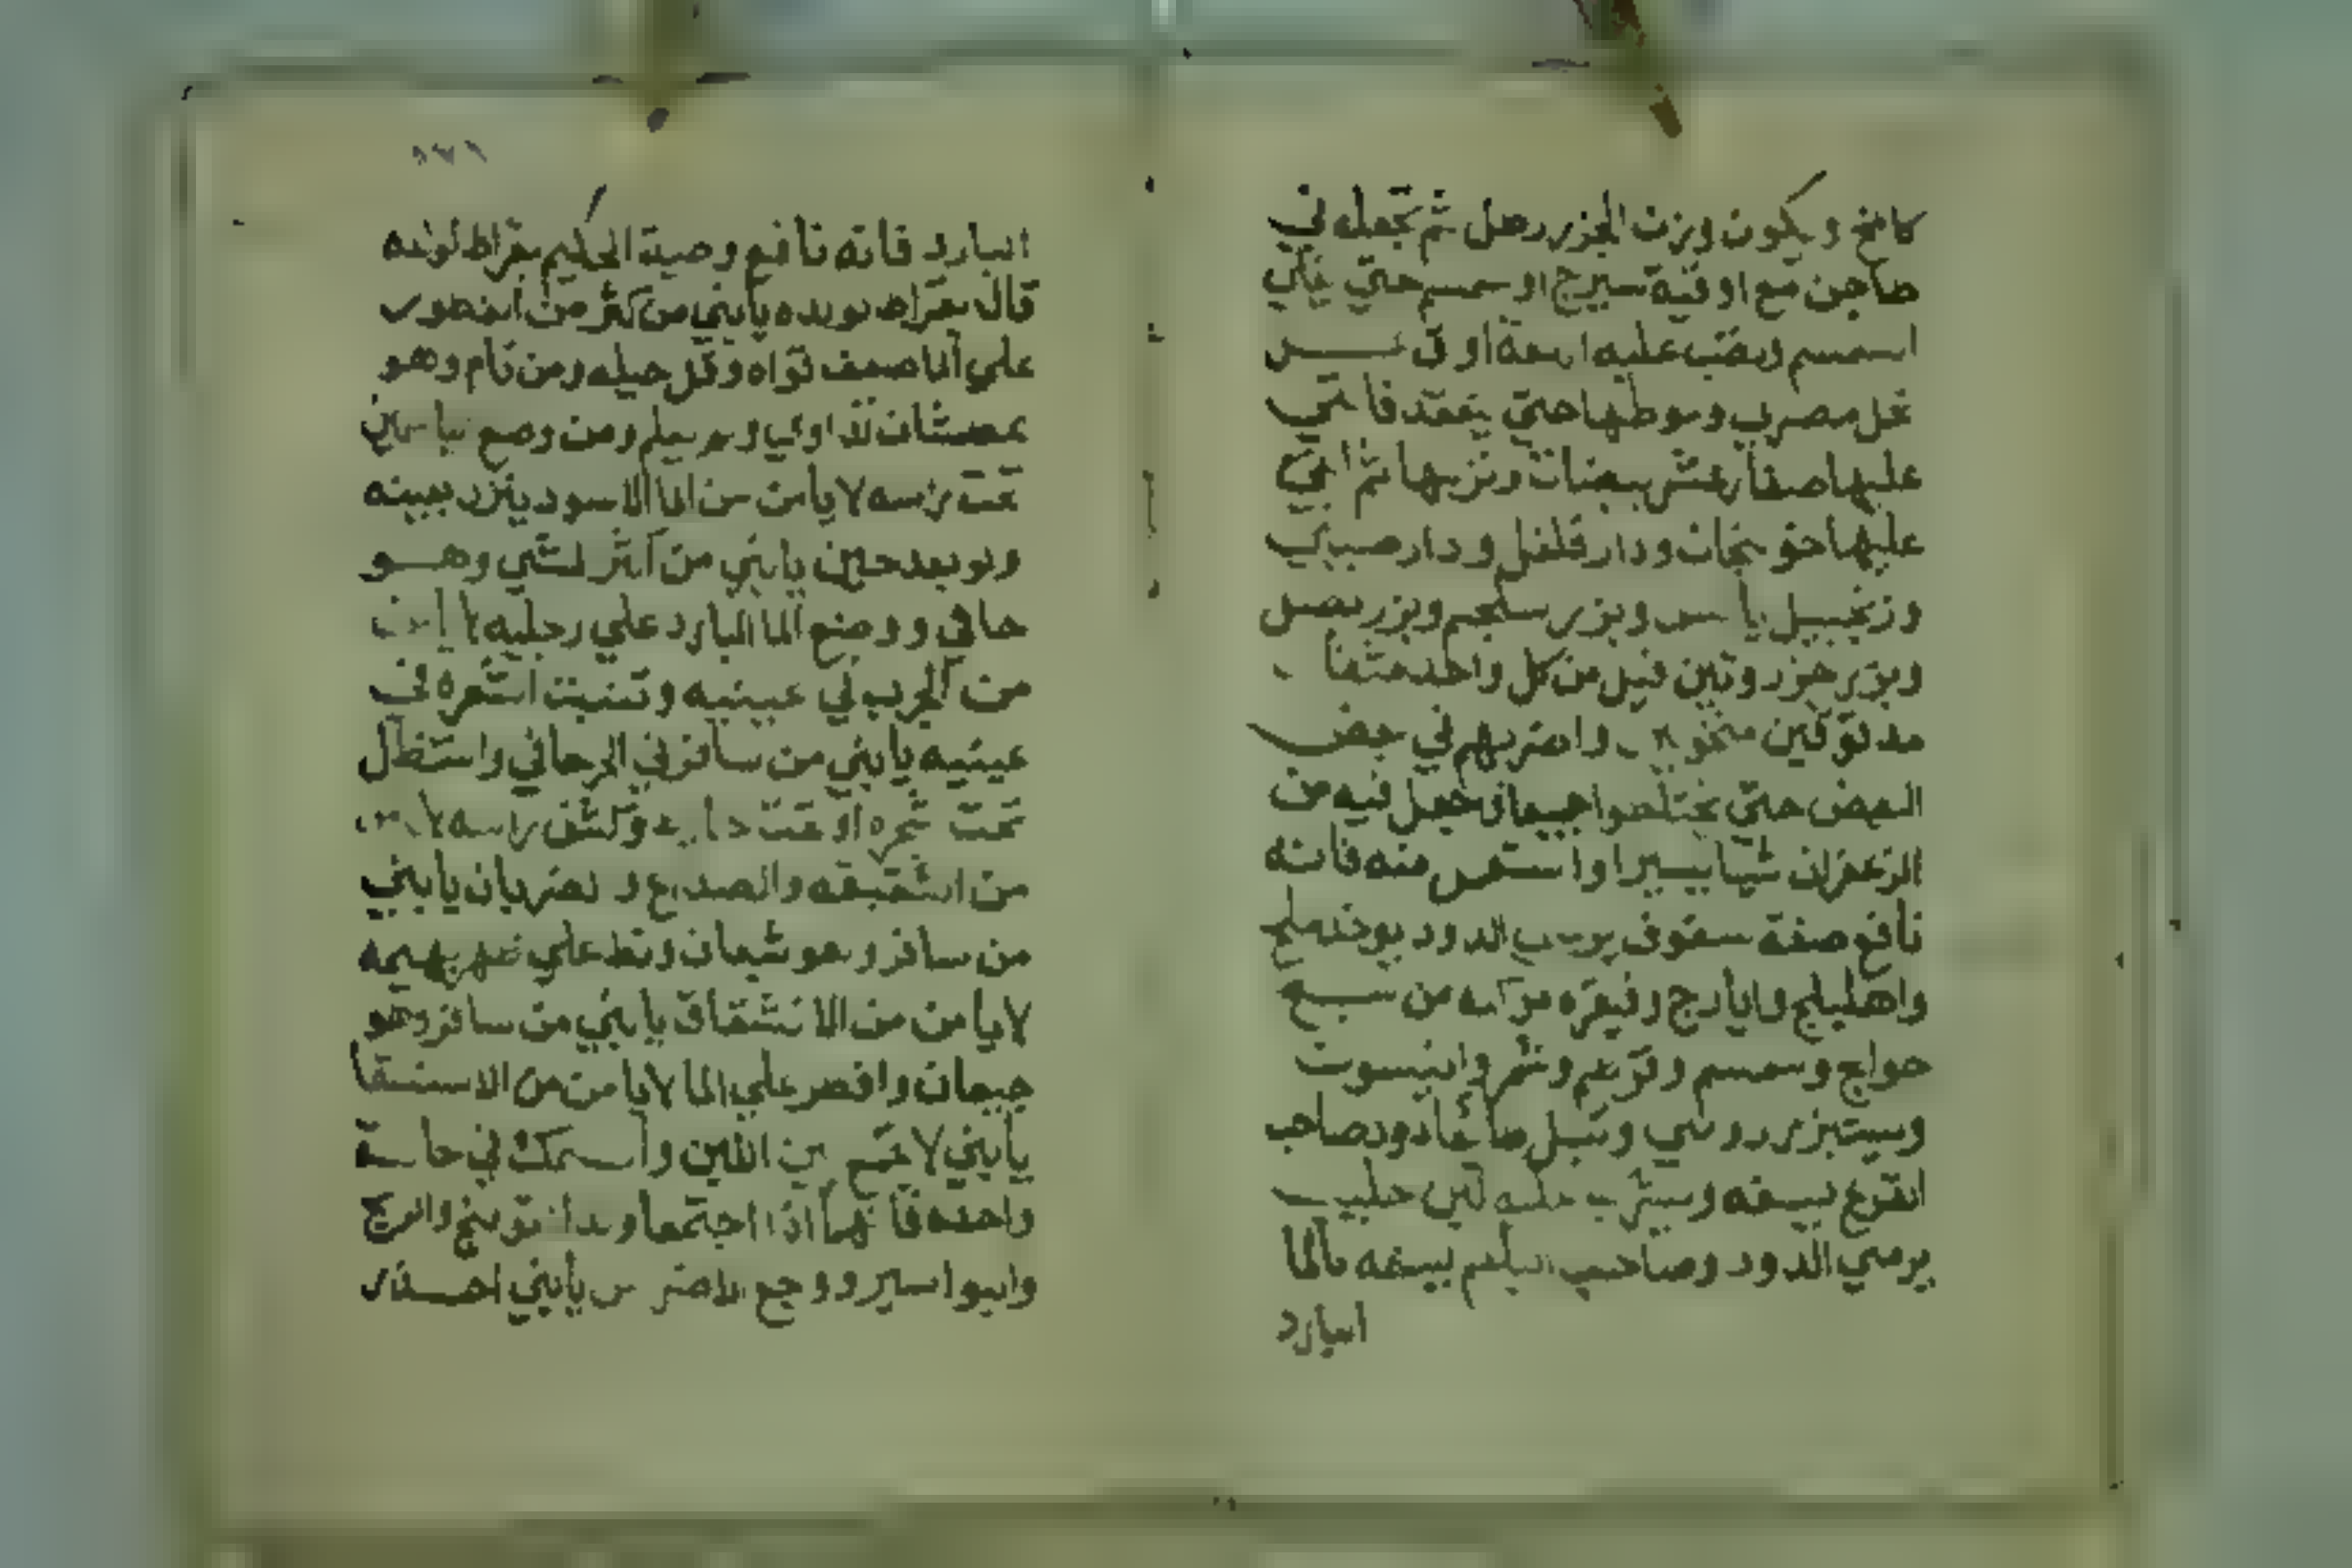 كامخ ويكون وزن الجزر رطل ثم تجعله في
طاجن مع اوقية سيرج او سمسم حتي يغلي
السمسم وبصب عليه اربعة اواق
نحل مصري وسوطها حتي يعقد فا
عليها صفار عشر بيضات ونزلها ثم
عليها خولنجان ودار فلفل ودار صيني
وزنجبيل يابس وبزر سلجم وبزر بصل
وبزر جزر وتين فيل من كل واحد مثقال
مدقوقين منخولين واضربهم في بعض
البعض حتي يختلطوا جميعا وتجعل فيه من
الزعفران شيا يسيرا واستعمل منه فانه
نافع صفة سفوف يرمي الدود يوخذ ملح
واهليلج وايارج وفيقره مركبه من سبع
حوايج وسمسم وقرطم وشمر وانيسون
وبزر وتبل صاحب
القرع يسفه ويشرب عليه لبن حليب
يرمي الدود وصاحب البلغم يسفه بالما
البارد
البارد فانه نافع وصية الحكيم بقراط لولده
قال بقراط لولده يا بني من كثر من
علي الما ضعف قواه وقل حيله ومن نام وهو
عطشان تداوي ولم يعلم ومن وضع
تحت راسه لا يامن من الما الاسود ينزل بعينه
ولو بعد حين يا بني من اكثر المشي وهو
حافي ووضع الما البارد علي رجليه لا يامن
من الجرب في عينيه وتنبيت الشعره في
عينيه يا بني من سافر في الرحاني واستظل
تحت شجره او تحت وكشف راسه لا يامن
من الشقيقه والصداع و يا بني
من سافر وهو شبعان ونط علي ظهر بهيمه
لا يامن من الانشقاق يا بني من سافر وهو
جيعان واقصر علي الما لا يامن من الاستسقا
يا بني لا تجمع بين اللبن والسمك في حالة
واحده فانهما اذا اجتمعا ولدا القولنج والريح
والبواسير ووجع الاضراس يا بني احذر